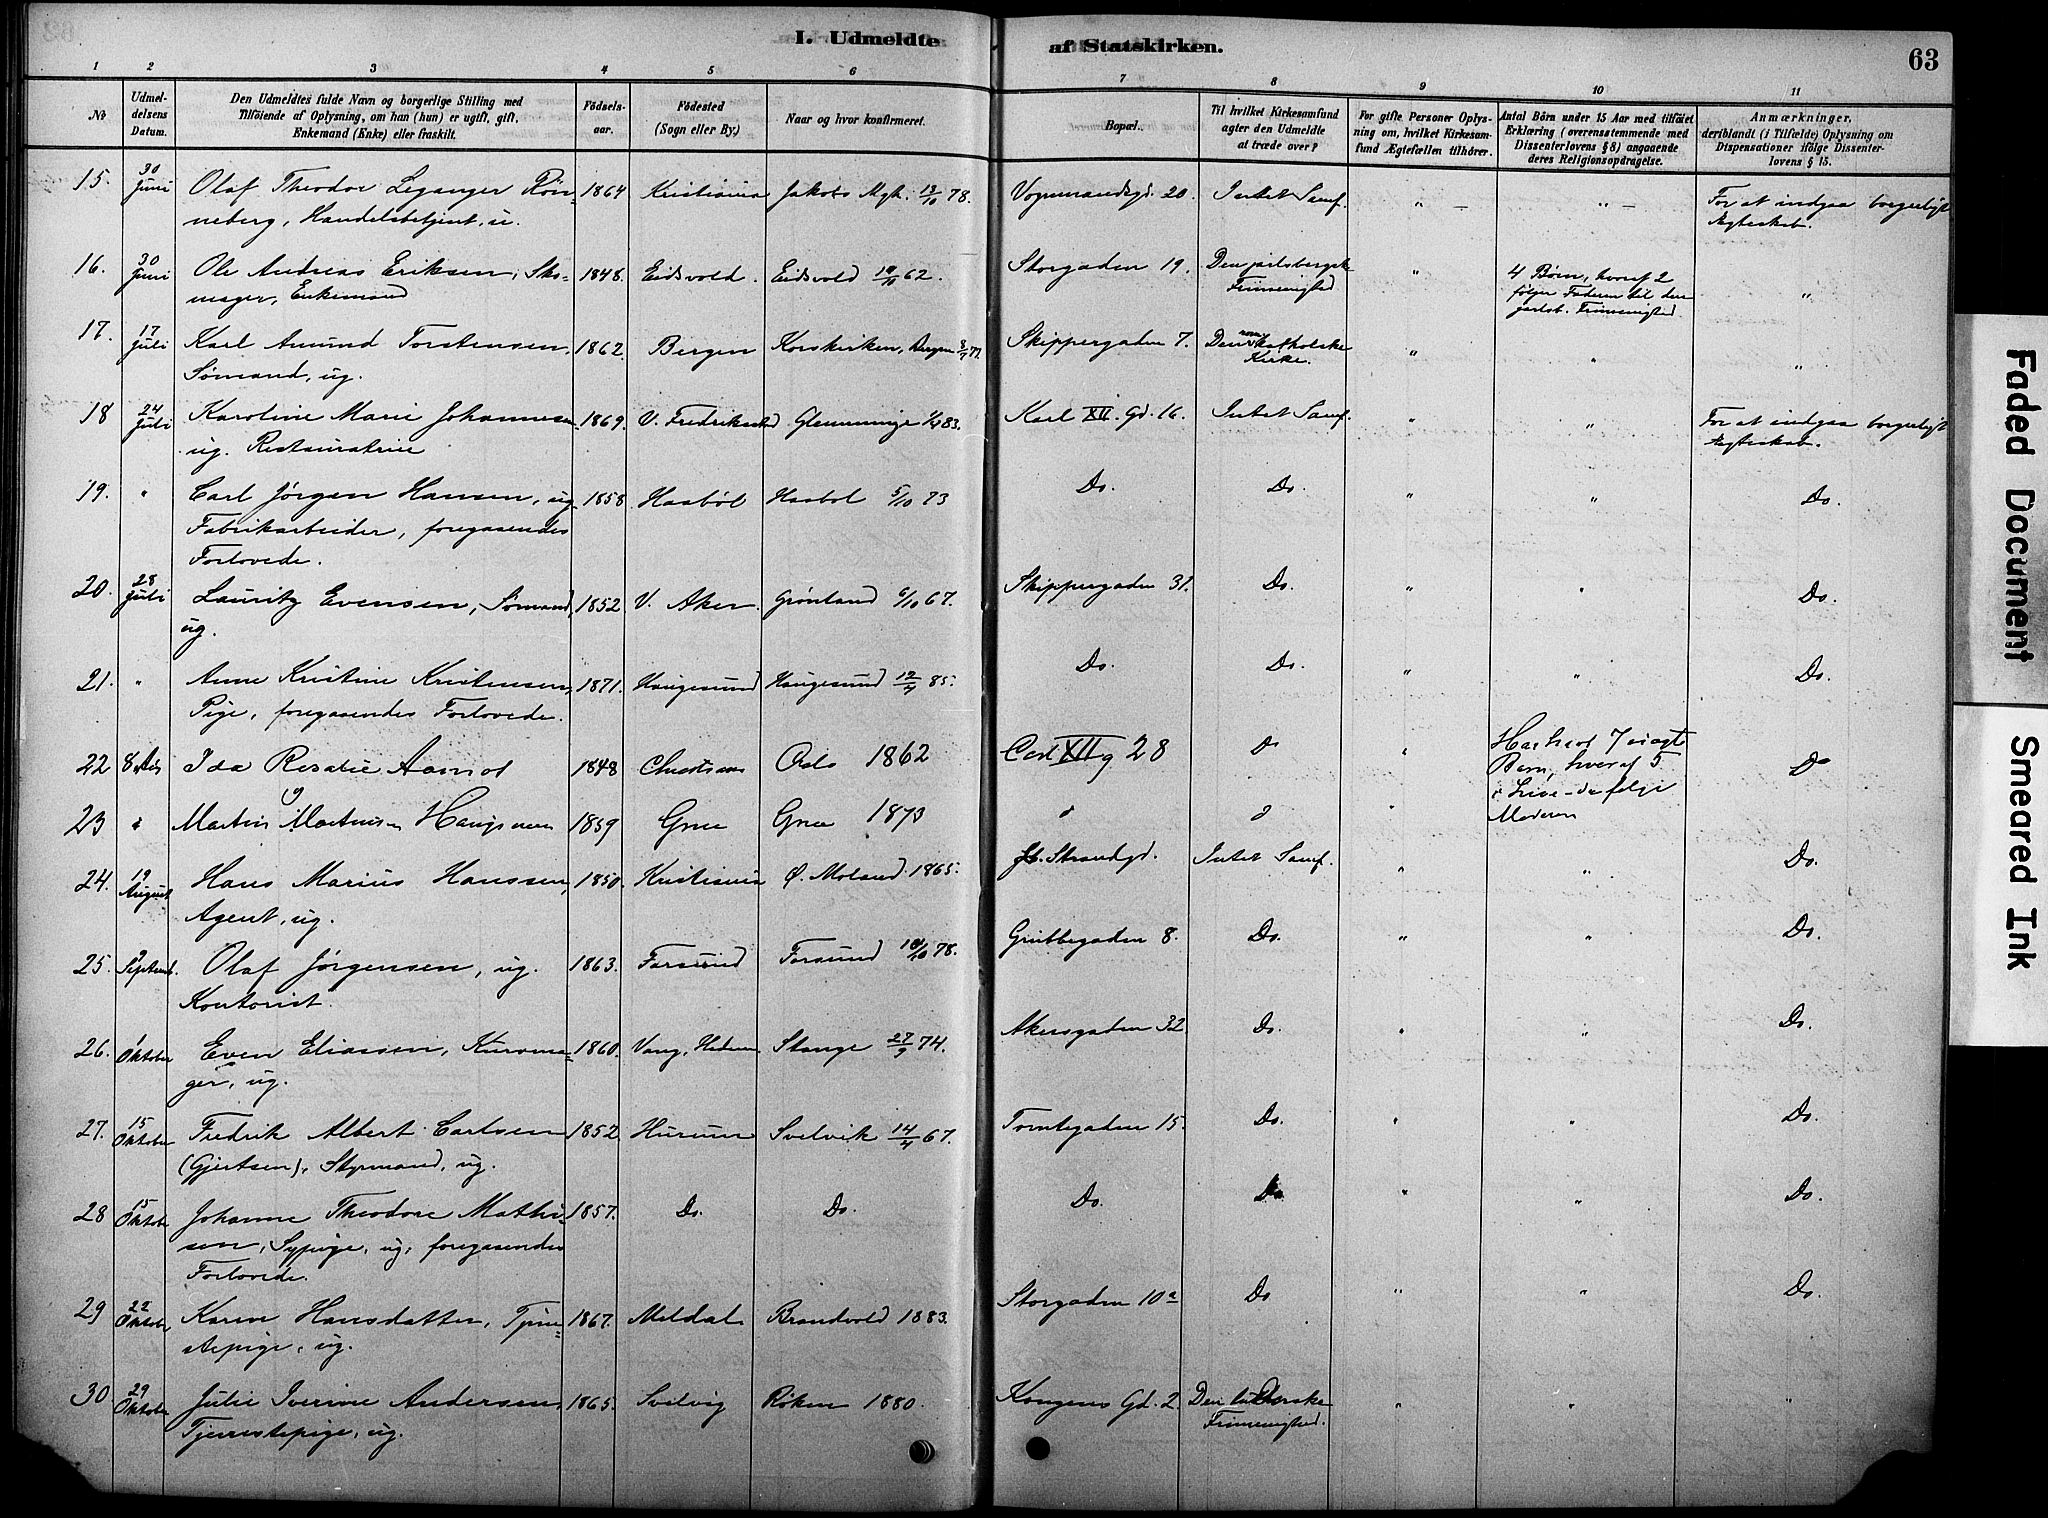 I. Udmeldte af Statskirken.
63
1 2 3 4 5 6 7 8 9 10 11
No
Udmel-
delsens
Datum.
Den Udmeldtes fulde Navn og borgerlige Stilling med
Tilföiende af Oplysning, om han (hun) er ugift, gift,
Enkemand (Enke) eller fraskilt.
Födsels-
aar.
Födested
(Sogn eller By.)
Naar og hvor konfirmeret.
Bopæl.
Til hvilket Kirkesamfund
agter den Udmeldte
at træde over?
For gifte Personer Oplys-
ning om, hvilket Kirkesam-
fund Ægtefællen tilhörer.
Antal Börn under 15 Aar med tilföiet
Erklæring (overensstemmende med
Dissenterlovens § 8) angaaende
deres Religionsopdragelse.
Anmærkninger,
deriblandt (i Tilfælde) Oplysning om
Dispensationer ifölge Dissenter-
lovens § 15.
15. 30 Juni Olaf Theodor Leganger Rön- 1864 Kristiania Jakobs Mgh. 13/10 78. Vognmandsgd. 20. Intet Samf. " — " — For at indgaa borgerligt
neberg, Handelsbetjent, u. Ægteskab.
16. 30 Juni Ole Andreas Eriksen, Sko- 1848. Eidsvold. Eidsvold 62. Storgaden 19. Den jarlsbergske " 4 Börn, hvoraf 2
mager, Enkemand Frimenighed følger Faderen til den "
jarlsb. Frimenighed
17. 17 Juli Karl Amund Torstensen, 1862. Bergen Korskirken, Bergen 77. Skippergaden 7. Den rom. katholske " " "
Sømand, ug. Kirke.
18 24 Juli Karoline Marie Johannesen 1869. V. Fredrikstad Glemminge 83. Karl XII. Gd. 16. Intet Samf. " " For at indgaa borgerligt
ug. Restauratrice Ægteskab.
19. " Carl Jørgen Hansen, ug 1858 Haabøl Haabøl 5/10 73 Do. Do. " " Do.
Fabrikarbeider, foregaaendes
Forlovede.
20. 28 Juli Lauritz Evensen, Sømand, 1852. V. Aker Grønland 6/10 67. Skippergaden 31. Do. " " Do.
ug.
21. " Anne Kristine Kristensen, 1871. Haugesund Haugesund 12/4 85. Do. Do. " " Do.
Pige, foregaaendes Forlovede.
22 8. Ida Rosalie Aamot 1848 Oslo 1862 Carl XII g 28 Do " Har havt 7 uægte
Børn, hvoraf 5 Do
i Live – de følge
Moderen
23 " Martin 1859 Grue Grue 1873 "
24. 19 August Hans Marius Hanssen, 1850. Kristiania Ø. Moland 1865. Strandgd. Intet Samf. " " Do.
Agent, ug.
25. Septemb. Olaf Jørgensen, ug. 1863. Farsund Farsund 78. Grubbegaden 8. Do. " " Do.
Kontorist.
26. Oktober Even Eliassen, Kurvma- 1860. Vang, Hedem. Stange 27/9 74. Akersgaden 32 Do. " " Do.
ger, ug.
27. 15 Oktober Fredrik Albert Carlsen 1852. Hurum Svelvik 14/4 67. Tomtegaden 15. Do. " " Do.
(Gjertsen), Styrmand, ug.
28 15 Oktober Johanne Theodore Mathi- 1857. Do. Do. Do. Do. " " Do.
sen, Sypige, ug, foregaaendes
Forlovede.
29 22 Oktober Karen Hansdatter, Tjene- 1867. Meldal Brandvold 1883. Storgaden 10a Do " " Do.
stepige, ug.
30 29 Oktober Julie Iverine Andersen, 1865. Svelvig Røken 1880. Kongens Gd. 2. Den lutherske " " "
Tjenestepige, ug. Frimenighed.
Faded Document
Smeared Ink